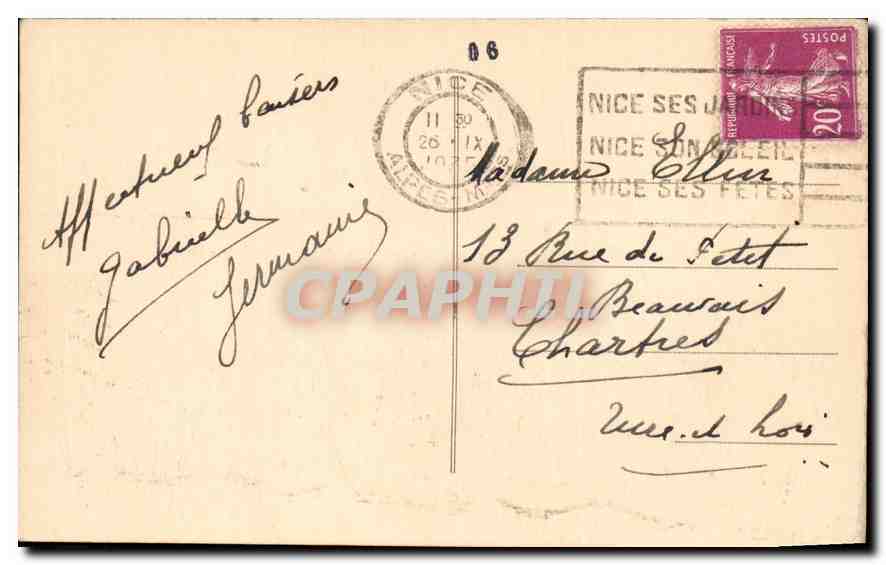 06
NICE
11 30
26 IX
ALPES-MMES
NICE SES JARDINS
NICE SON SOLEIL
NICE SES FETES
POSTES
REPUBLIQUE FRANCAISE
20
Affectueux baisers
Gabrielle
Germaine
Madame
13 Rue du Petit
Beauvais
Chartres
Eure et Loir
CPAPHIL